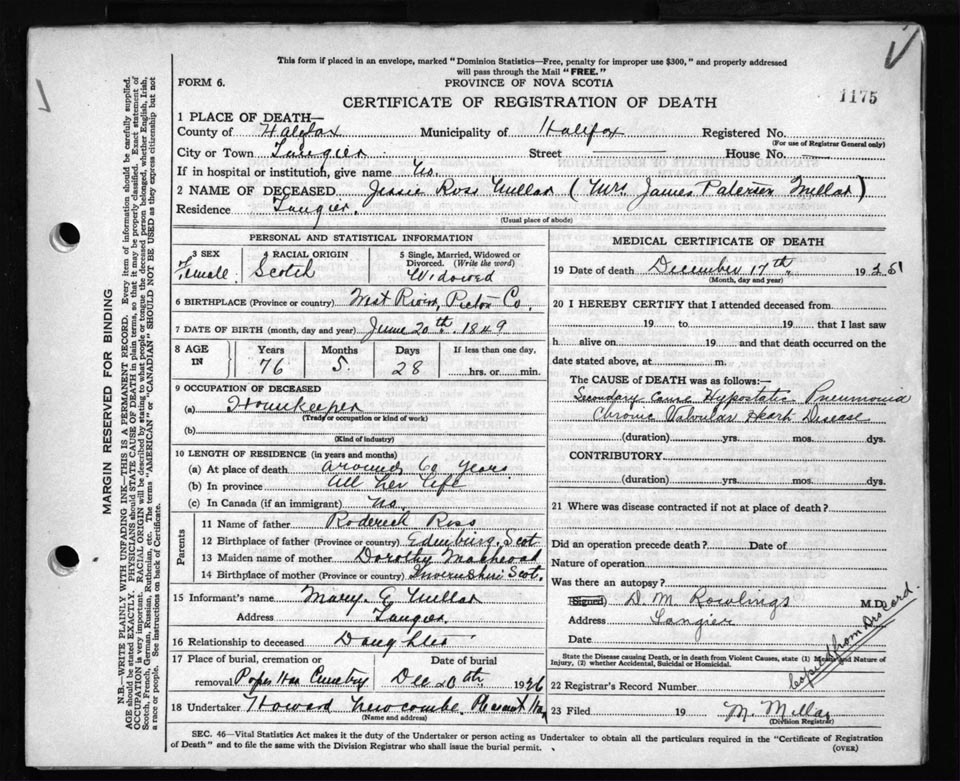 This form if placed in an envelope, marked "Dominion Statistics—Free, penalty for improper use $300," and properly addressed
will pass through the Mail "FREE."
FORM 6.
PROVINCE OF NOVA SCOTIA
CERTIFICATE OF REGISTRATION OF DEATH
1175
1 PLACE OF DEATH—
County of Halifax Municipality of Halifax Registered No.
(For use of Registrar General only)
City or Town Tangier Street House No.
If in hospital or institution, give name No.
2 NAME OF DECEASED Jessie Ross Millar (Mrs. James Paterson Millar)
Residence Tangier.
(Usual place of abode)
PERSONAL AND STATISTICAL INFORMATION
3 SEX Female
4 RACIAL ORIGIN Scotch
5 Single, Married, Widowed or Divorced. (Write the word) Widowed
6 BIRTHPLACE (Province or country) West River, Pictou Co.
7 DATE OF BIRTH (month, day and year) June 20th. 1849
8 AGE IN Years 76 Months 5 Days 28 If less than one day, hrs. or min.
9 OCCUPATION OF DECEASED
(a) Housekeeper
(Trade or occupation or kind of work)
(b)
(Kind of industry)
10 LENGTH OF RESIDENCE (in years and months)
(a) At place of death around 60 years
(b) In province All her life
(c) In Canada (if an immigrant) No.
Parents
11 Name of father Roderick Ross
12 Birthplace of father (Province or country) Scot
13 Maiden name of mother Dorothy
14 Birthplace of mother (Province or country) Scot.
15 Informant's name Mary E Millar
Address Tangier.
16 Relationship to deceased Daughter
17 Place of burial, cremation or removal Cemetry
Date of burial Dec 20th. 1926
18 Undertaker Howard Newcombe. Pleasant
(Name and address)
MEDICAL CERTIFICATE OF DEATH
19 Date of death December 17th. 19
(Month, day and year)
20 I HEREBY CERTIFY that I attended deceased from
19 to 19 that I last saw
h alive on 19 and that death occurred on the
date stated above, at m.
The CAUSE OF DEATH was as follows:—
Secondary Cause Hypostatic Pneumonia
Chronic Valvular Heart Disease
(duration) yrs. mos. dys.
CONTRIBUTORY
(duration) yrs. mos. dys.
21 Where was disease contracted if not at place of death?
Did an operation precede death? Date of
Nature of operation
Was there an autopsy?
(Signed) D. M. Rowlings M.D.
Address Tangier
Date
State the Disease causing Death, or in death from Violent Causes, state (1) Means and Nature of
Injury, (2) whether Accidental, Suicidal or Homicidal.
22 Registrar's Record Number
23 Filed 19 M. Millar
(Division Registrar)
SEC. 46—Vital Statistics Act makes it the duty of the Undertaker or person acting as Undertaker to obtain all the particulars required in the "Certificate of Registration
of Death" and to file the same with the Division Registrar who shall issue the burial permit.
(OVER)
MARGIN RESERVED FOR BINDING
N.B.—WRITE PLAINLY WITH UNFADING INK—THIS IS A PERMANENT RECORD. Every item of information should be carefully supplied.
AGE should be stated EXACTLY. PHYSICIANS should STATE CAUSE OF DEATH in plain terms, so that it may be properly classified. Exact statement of
OCCUPATION is very important. RACIAL ORIGIN will be described by stating to what people or tongue the deceased person belonged, whether English, Irish,
Scotch, French, German, Russian, Ruthenian, etc. The terms "AMERICAN" or "CANADIAN" SHOULD NOT BE USED as they express citizenship but not
a race or people. See instructions on back of Certificate.